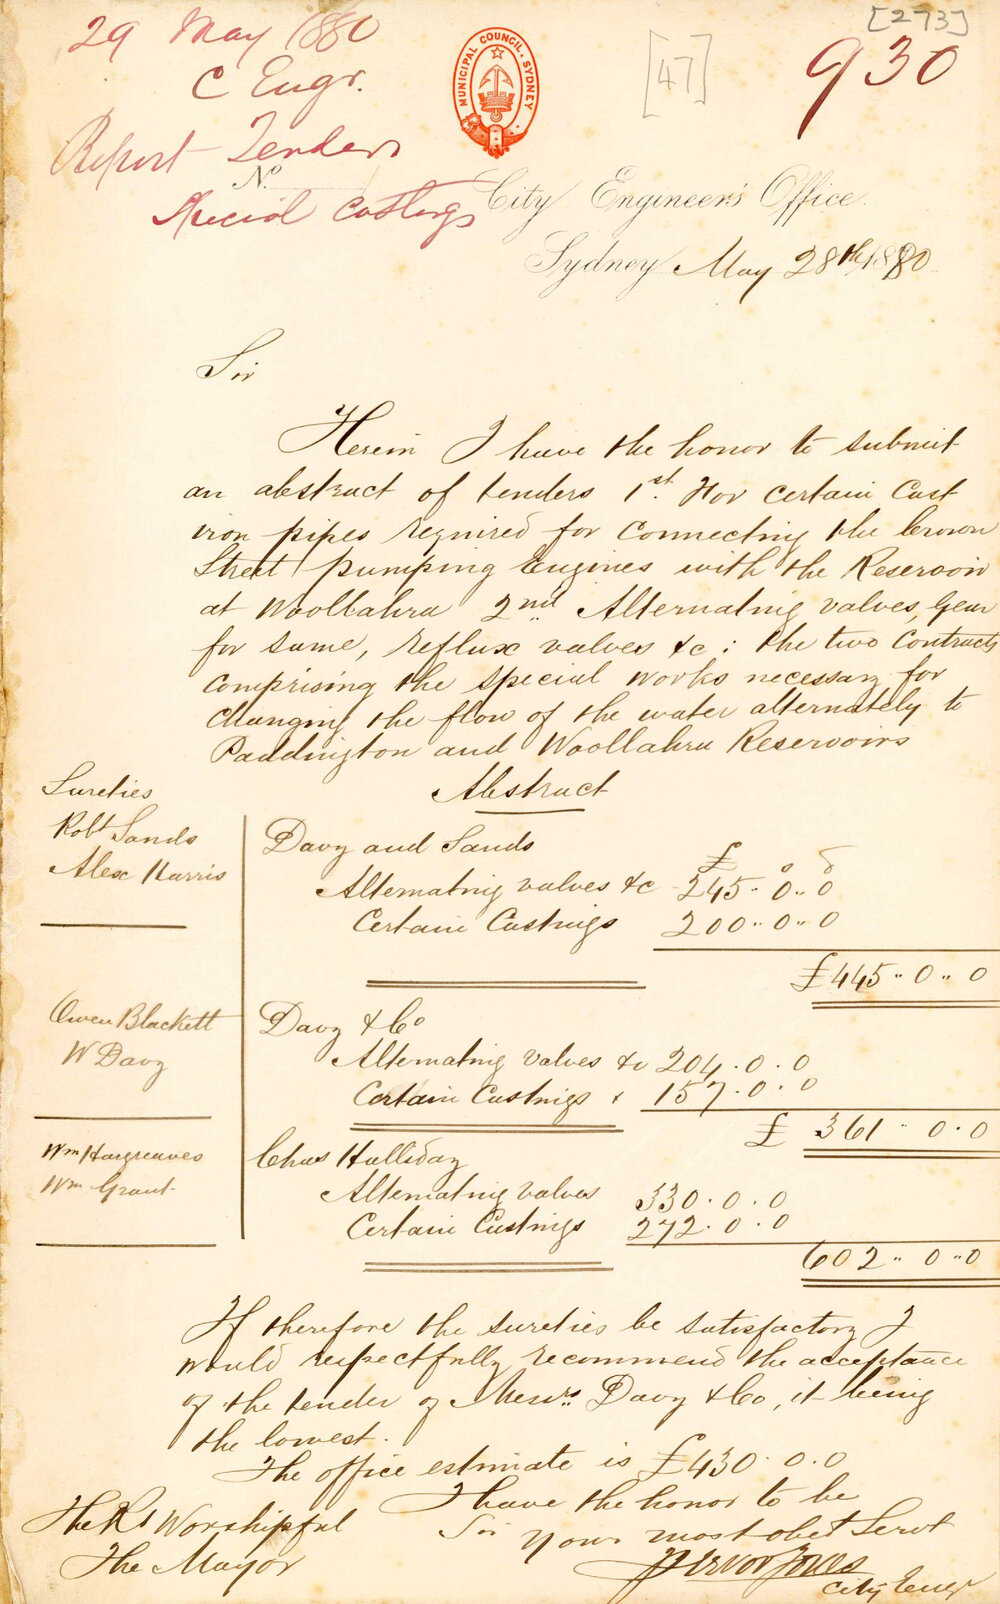 [273]
29 May 1880
C Engr.
[47]
930
MUNICIPAL COUNCIL. SYDNEY
Report Tenders
No
Special Castings
City Engineer's Office.
Sydney May 28th 1880
Sir
Herein I have the honor to submit
an abstract of tenders 1st. For certain Cast
iron pipes required for connecting the Crown
Street pumping Engines with the Reservoir
at Woollahra 2nd. Alternating valves, gear
for same, reflux valves &c: the two Contracts
comprising the special works necessary for
changing the flow of the water alternately to
Paddington and Woollahra Reservoirs
Abstract
Sureties
Robt Sands
Alex Harris
Davy and Sands
£ s d
Alternating valves &c 245 . 0 .. 0
Certain Castings 200 .. 0 .. 0
£445 .. 0 .. 0
Owen Blackett
W Davy
Davy & Co
Alternating valves &c 204 . 0 . 0
Certain Castings 157 . 0 . 0
£ 361 . 0 . 0
Wm Hargreaves
Wm Grant
Chas Halliday
Alternating valves 330 . 0 . 0
Certain Castings 272 . 0 . 0
602 .. 0 .. 0
If therefore the sureties be satisfactory I
would respectfully recommend the acceptance
of the tender of Messrs. Davy & Co, it being
the lowest.
The office estimate is £430 . 0 . 0
I have the honor to be
Sir
Your most obet Servt
The Rt Worshipful
The Mayor
City Engr